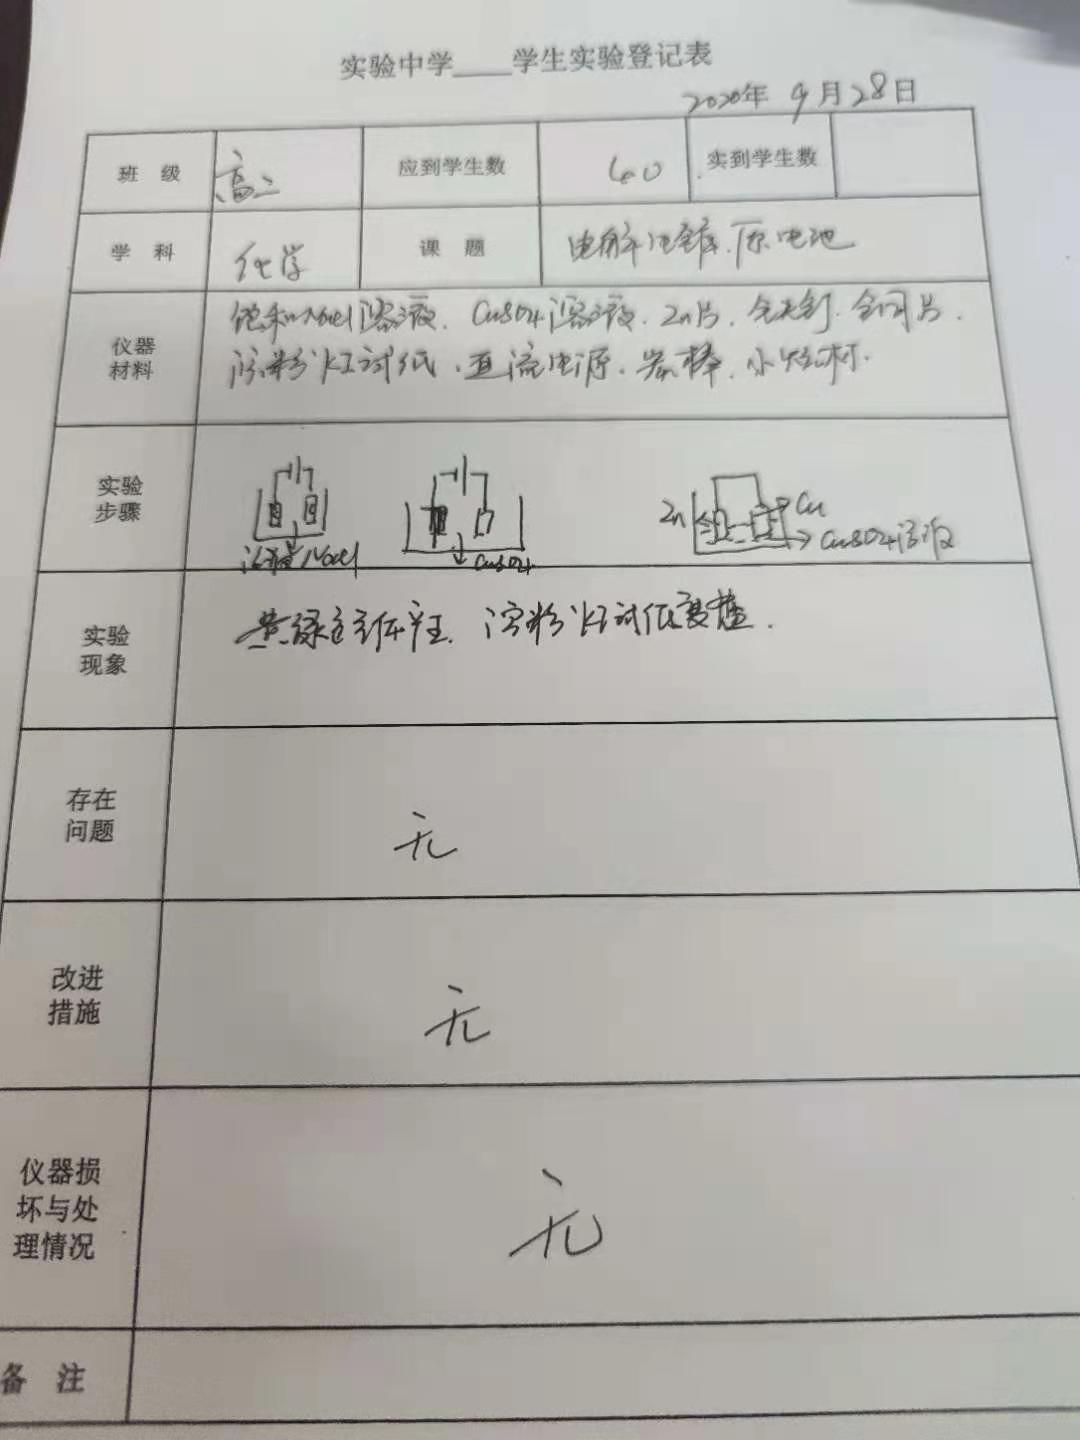 实验中学____学生实验登记表
2020年 9月28日
班 级 高二 应到学生数 40 实到学生数
学 科 化学 课 题 电解 电镀 原电池
仪器材料 饱和NaCl溶液、CuSO4溶液、Zn片、
淀粉KI试纸、直流电源、炭棒、小烧杯.
实验步骤
NaCl
CuSO4
Zn Cu
CuSO4溶液
实验现象 黄绿色气体产生、淀粉KI试纸变蓝.
存在问题 无
改进措施 无
仪器损坏与处理情况 无
备 注